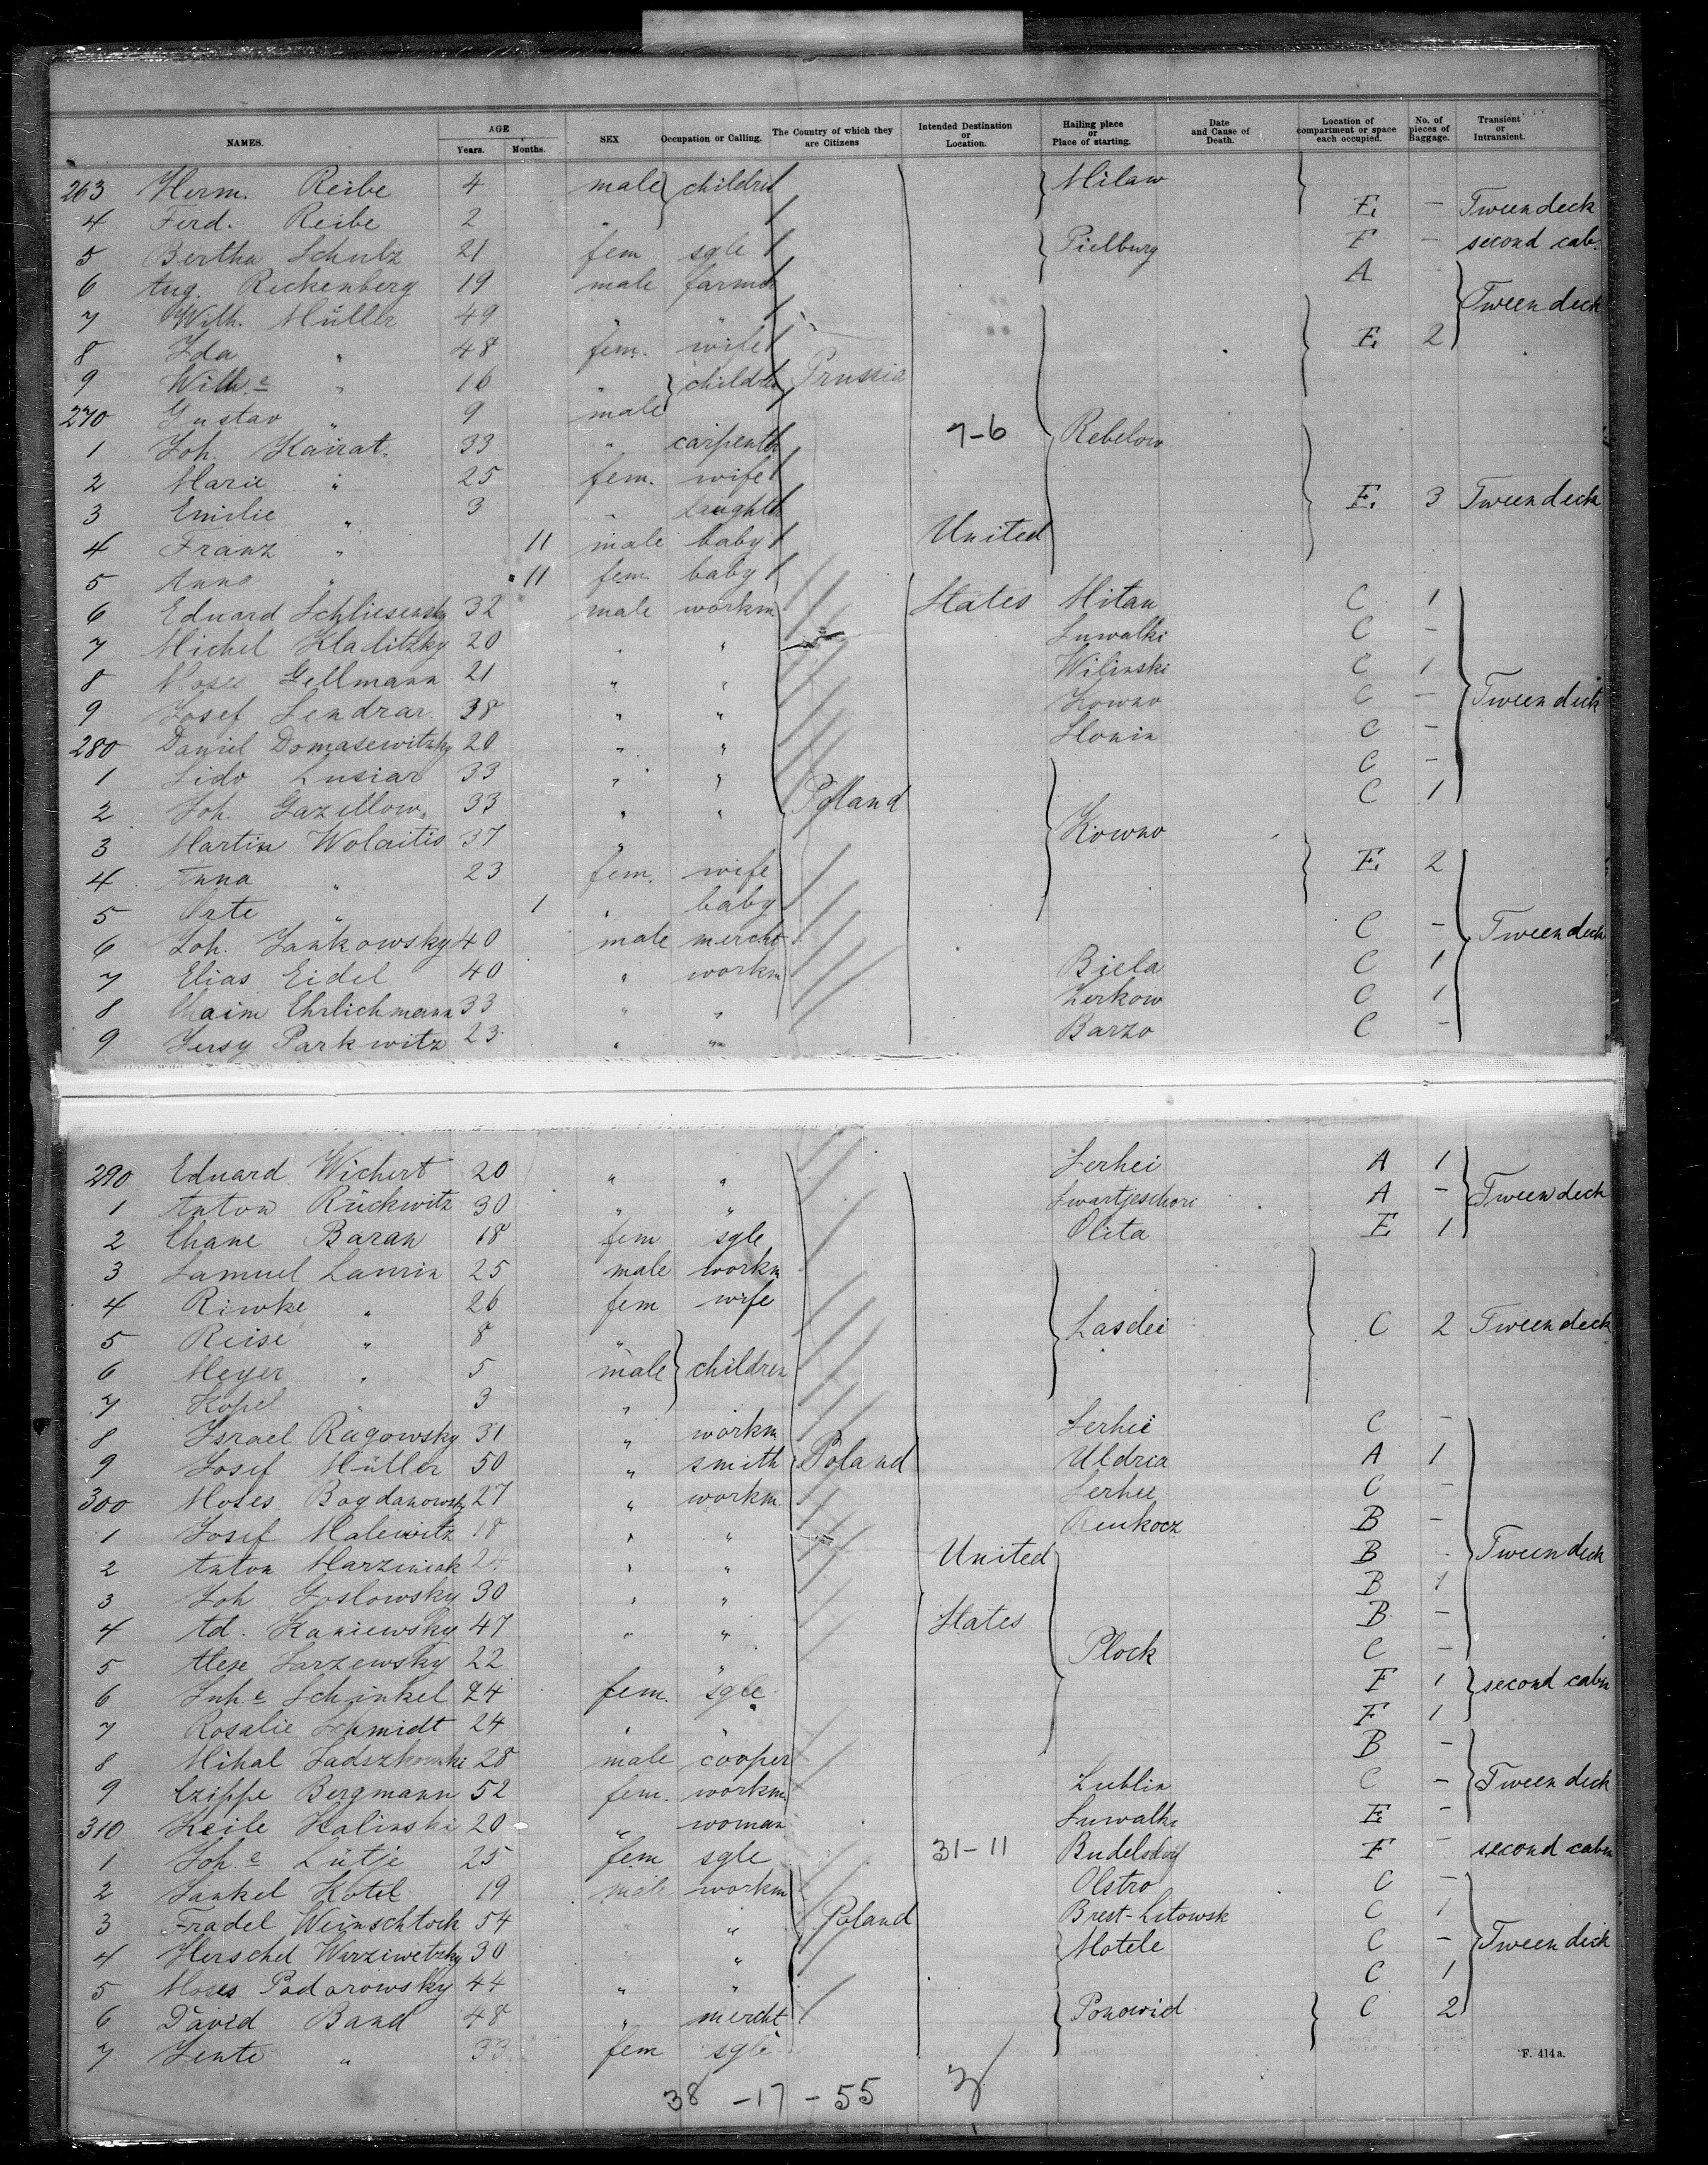 NAMES. AGE Years. Months. SEX Occupation or Calling. The Country of which they are Citizens Intended Destination or Location. Hailing place or Place of starting. Date and Cause of Death. Location of compartment or space each occupied. No. of pieces of Baggage. Transient or Intransient.
263 Herm. Reibe 4 male } children Milaw
4 Ferd. Reibe 2 " E. - Tween deck
5 Bertha Schulz 21 fem sgle Pielburg F - second cab.
6 Aug. Reckenberg 19 male farmer A
7 Wilh. Müller 49 " " Tween deck
8 Ida " 48 fem. wife E. 2
9 Wilh.e " 16 " } children Prussia
270 Gustav " 9 male
1 Joh. Kairat. 33 " carpenter 7-6 Rebelow
2 Marie " 25 fem. wife
3 Emilie " 3 " daughter E. 3 Tween deck
4 Franz " 11 male baby United
5 Anna " 11 fem. baby
6 Eduard Schliesensky 32 male workm States Mitau C 1
7 Michel Kladitzky 20 " " Suwalki C -
8 Moses Gellmann 21 " " Wilinski C 1
9 Josef Lendrar. 38 " " Kowno C - Tween deck
280 Daniel Domasewitzky 20 " " Slonin C -
1 Lido Lusiar 33 " " C -
2 Joh. Gazellow. 33 " " Poland C 1
3 Martin Wolaitis 37 " Kowno
4 Anna " 23 fem. wife E. 2
5 Orte " 1 " baby
6 Joh. Jankowsky 40 male mercht C - Tween deck
7 Elias Eidel 40 " workm Biela C 1
8 Chaim Ehrlichmann 33 " " Zerkow C 1
9 Jersy Parkwitz 23 " " Barzo C -
290 Eduard Wichert 20 " " Serhei A 1
1 Anton Rückwitz 30 " " Swartjeschori A - Tween deck
2 Chane Baran 18 fem sgle Olita E 1
3 Samuel Lamrin 25 male workm
4 Riwke " 26 fem wife
5 Reise " 8 " Lasdei C 2 Tween deck
6 Meyer " 5 male } children
7 Kopel " 3 "
8 Israel Ragowsky 31 " workm Serhei C -
9 Josef Müller 50 " smith Poland Uldria A 1
300 Moses Bogdanowsky 27 " workm Serhei C -
1 Josef Malewitz 18 " " Renkocz B -
2 Anton Marziniak 24 " " United B - Tween deck
3 Joh. Goslowsky 30 " " B 1
4 Ad. Kaniewsky 47 " " States B -
5 Alex Sarzewsky 22 " Plock C -
6 Juh.e Schinkel 24 fem. sgle F 1 second cabin
7 Rosalie Schmidt 24 " " F 1
8 Mihal Sadszkowski 28 male cooper B -
9 Czippe Bergmann 52 fem. workm Lublin C - Tween deck
310 Keile Kalinski 20 " woman Suwalki E -
1 Joh.e Lütje 25 fem sgle 31-11 Budelsdorf F - second cabin
2 Jankel Kotel 19 male workm Olstro C -
3 Fradel Weinschtock 54 " " Poland Brest-Litowsk C 1
4 Herschel Warziwetzky 30 " " Motele C - Tween deck
5 Moses Padorowsky 44 " " C 1
6 David Band 48 " mercht Ponowid C 2
7 Zente " 33 fem sgle
F. 414a.
38 - 17 - 55